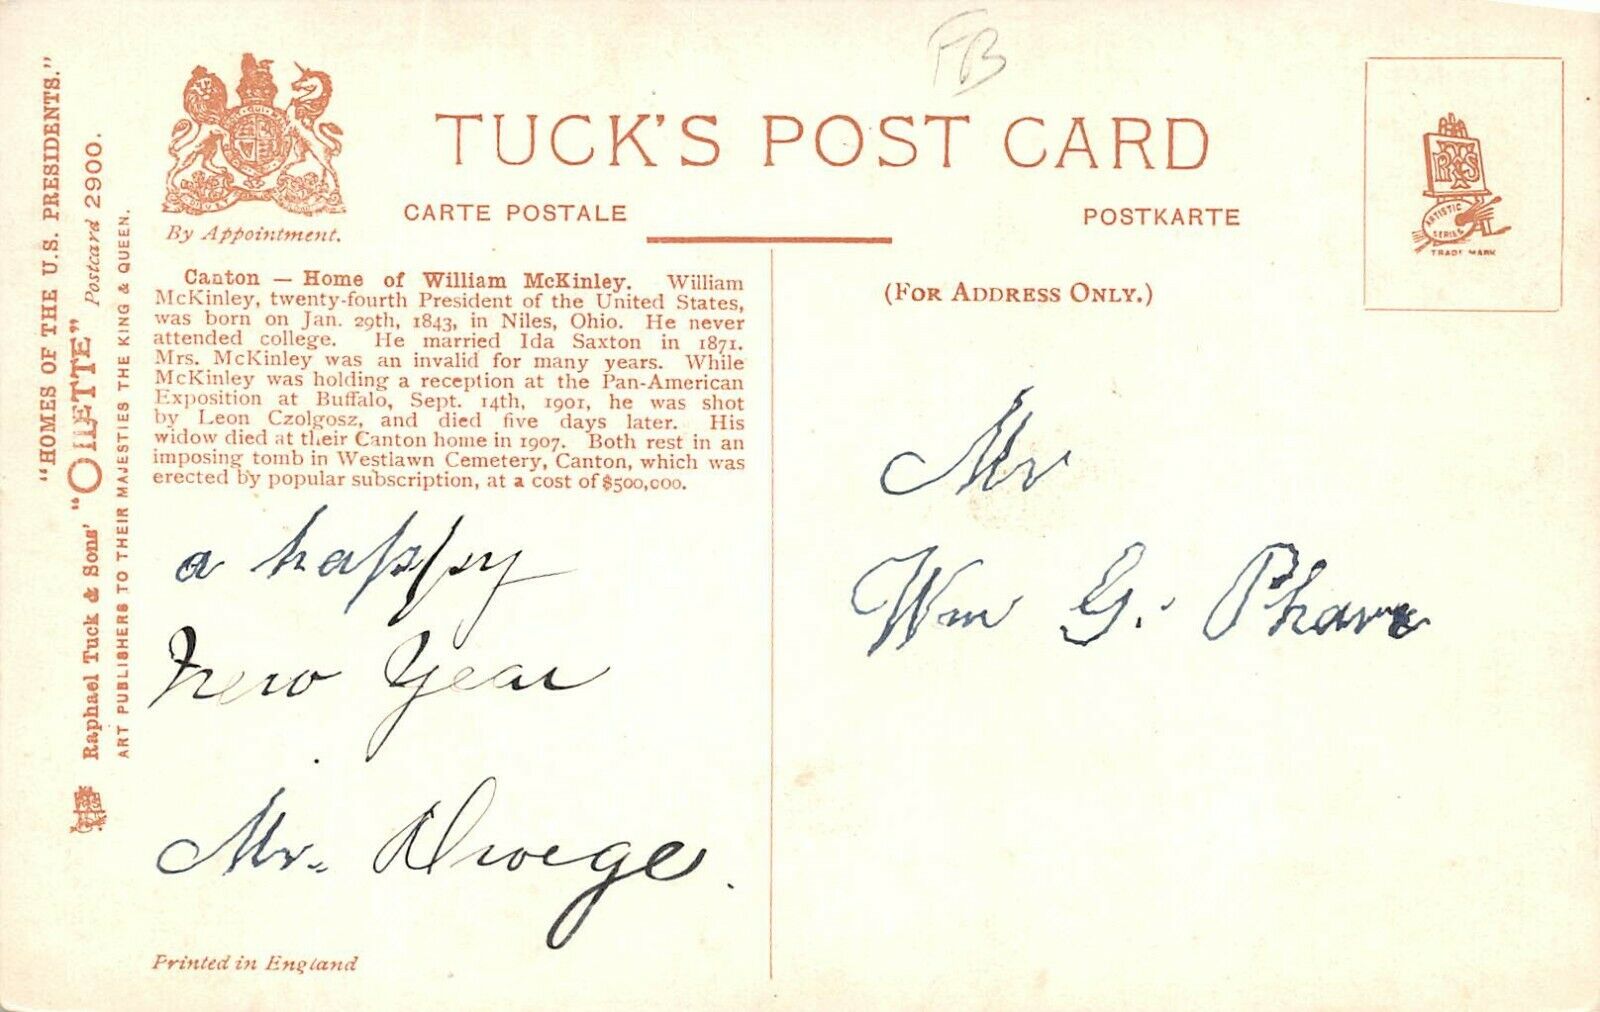 FB
TUCK'S POST CARD
CARTE POSTALE
POSTKARTE
By Appointment.
ARTISTIC
SERIES
TRADE MARK
"HOMES OF THE U.S. PRESIDENTS."
Raphael Tuck & Sons' "OILETTE" Postcard 2900.
ART PUBLISHERS TO THEIR MAJESTIES THE KING & QUEEN.
Canton — Home of William McKinley. William
McKinley, twenty-fourth President of the United States,
was born on Jan. 29th, 1843, in Niles, Ohio. He never
attended college. He married Ida Saxton in 1871.
Mrs. McKinley was an invalid for many years. While
McKinley was holding a reception at the Pan-American
Exposition at Buffalo, Sept. 14th, 1901, he was shot
by Leon Czolgosz, and died five days later. His
widow died at their Canton home in 1907. Both rest in an
imposing tomb in Westlawn Cemetery, Canton, which was
erected by popular subscription, at a cost of $500,000.
a happy
New Year
Mr. Droege.
Printed in England
(FOR ADDRESS ONLY.)
Mr
Wm G.